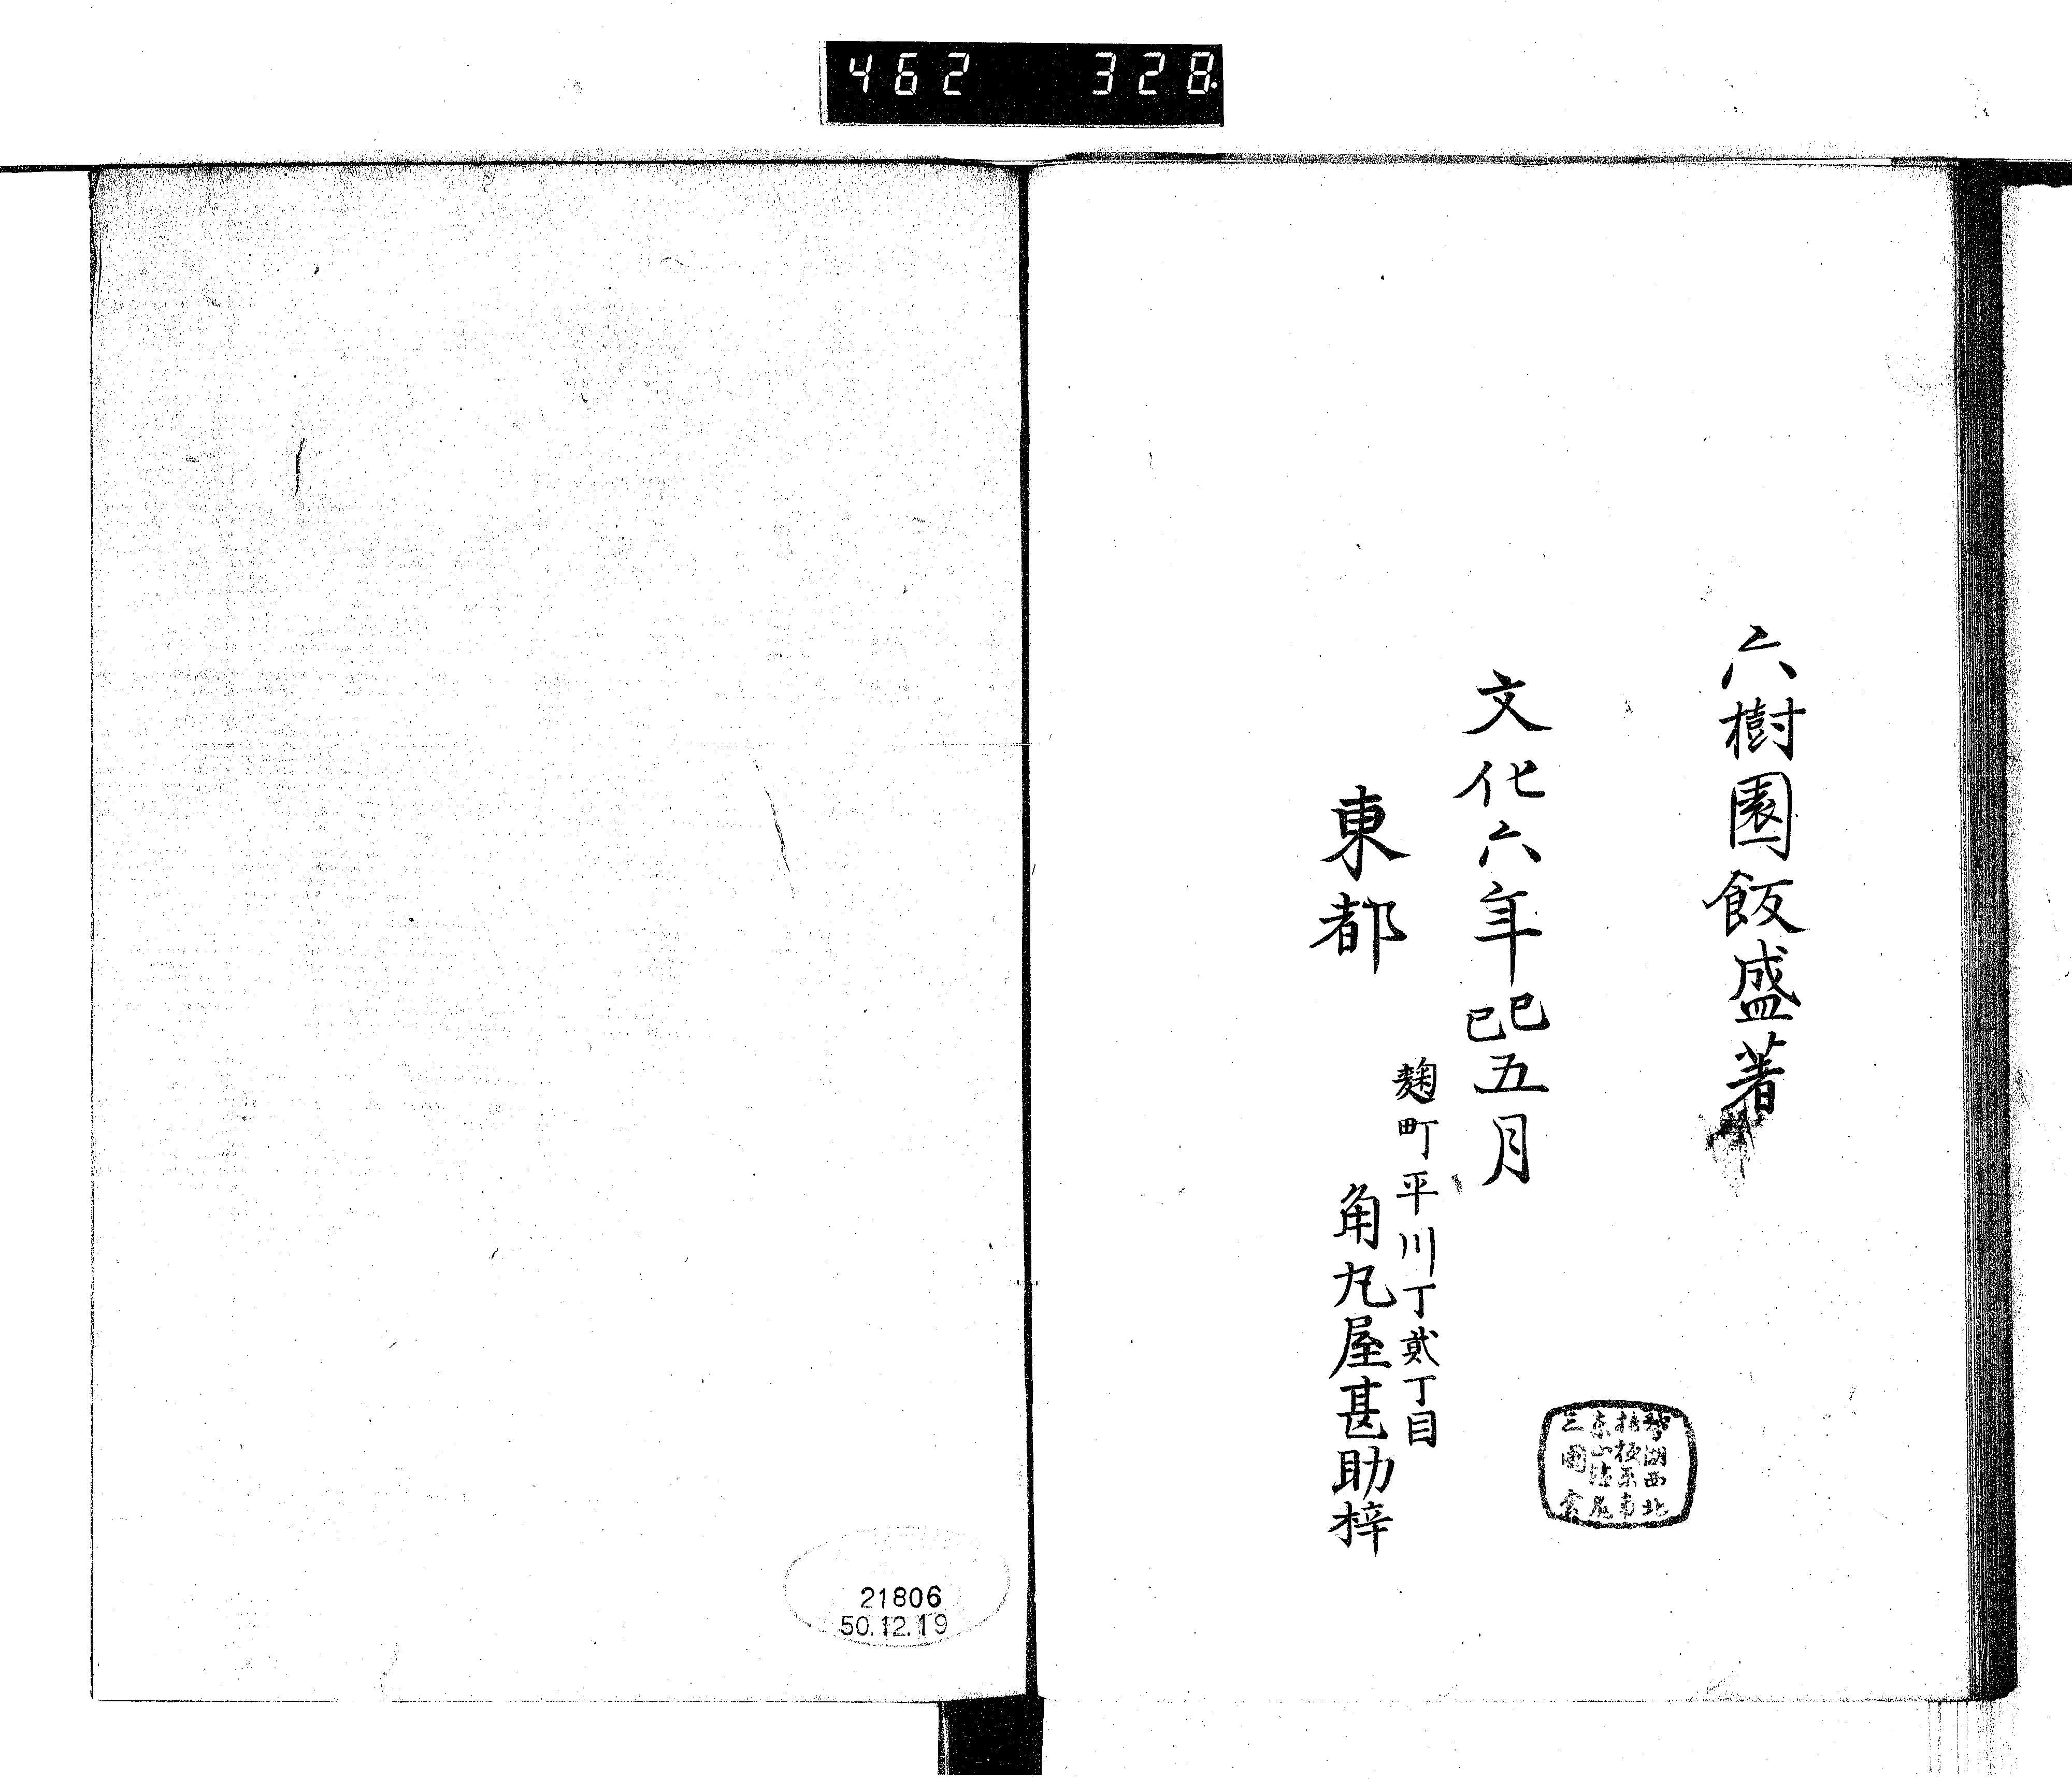 462 328
六樹園飯盛著
文化六年己巳五月
東都
麹町平川丁貳丁目
角丸屋甚助梓
湖西北
東山
三国
21806
50.12.19